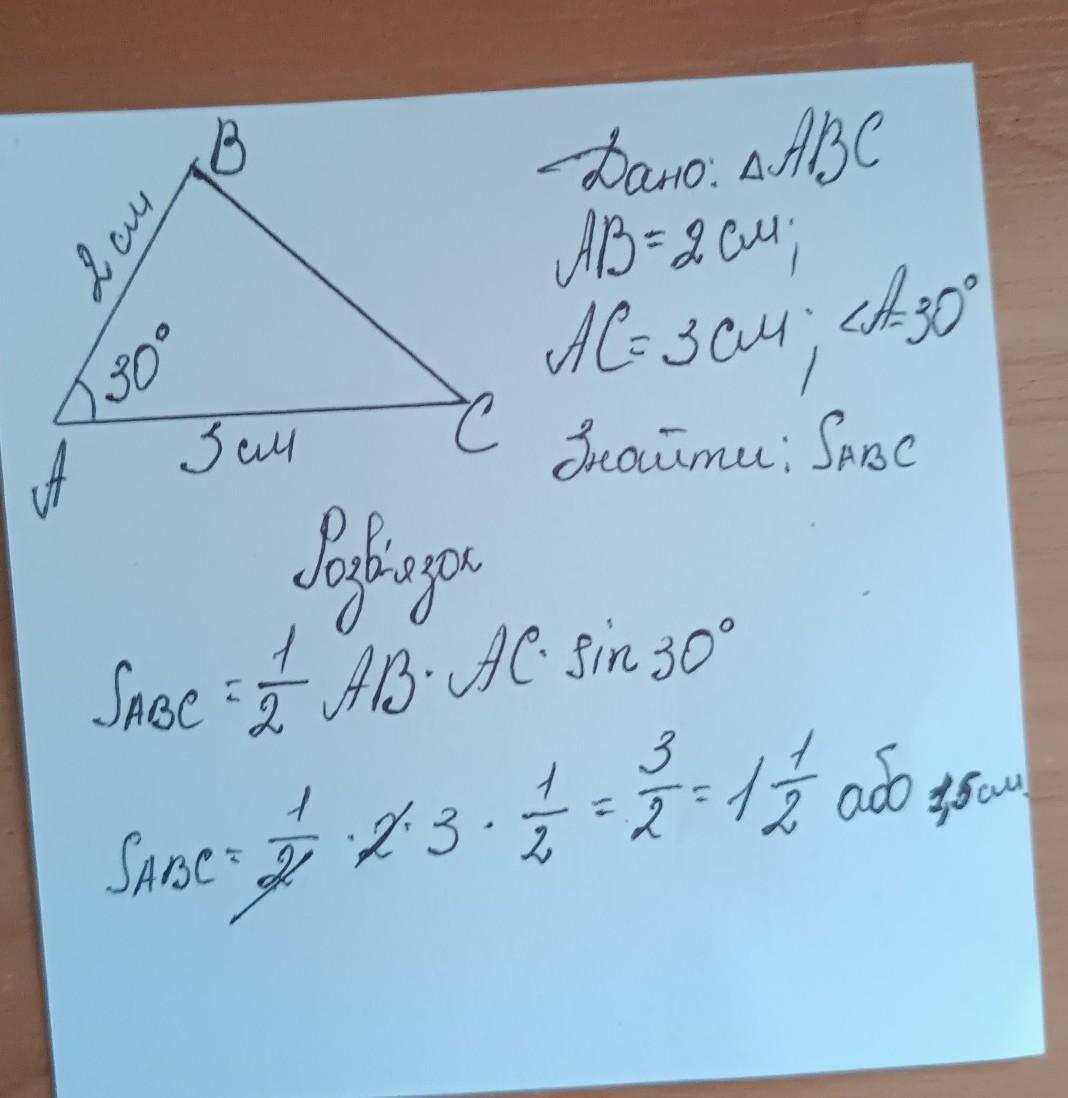 B
2 см
30°
A
3 см
C
Дано: △ABC
AB = 2 см;
AC = 3 см; <A=30°
Знайти: SABC
Розв'язок
SABC = 1/2 AB · AC · sin 30°
SABC = 1/2 · 2 · 3 · 1/2 = 3/2 = 1 1/2 або 1,5 см